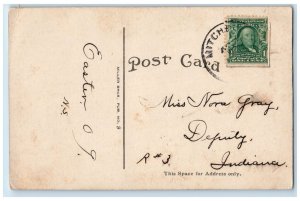 MITCH
Post Card
Easter O9.
N.S.
Miss Nora Gray,
Deputy,
R#3 Indiana.
This Space for Address only.